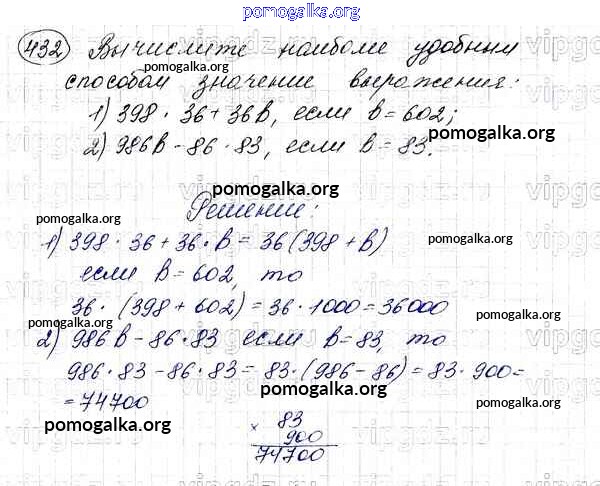 pomogalka.org
432 Вычислите наиболее удобным
pomogalka.org
способом значение выражения:
1) 398 · 36 + 36b, если b = 602;
pomogalka.org
2) 986b - 86 · 83, если b = 83.
pomogalka.org
pomogalka.org
Решение:
1) 398 · 36 + 36 · b = 36 (398 + b)
pomogalka.org
если b = 602, то
pomogalka.org
36 · (398 + 602) = 36 · 1000 = 36000
pomogalka.org
2) 986b - 86 · 83 если b = 83, то
pomogalka.org
986 · 83 - 86 · 83 = 83 · (986 - 86) = 83 · 900 =
pomogalka.org
= 74700
pomogalka.org
× 83
900
74700
pomogalka.org